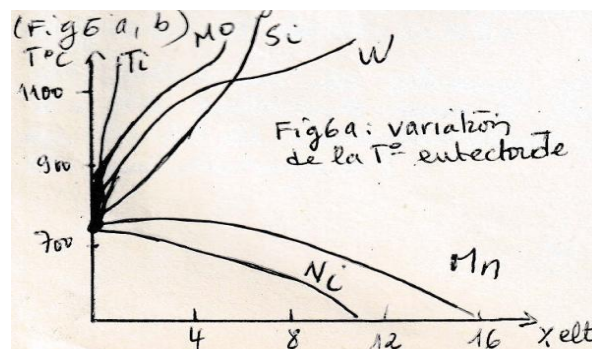 (Fig6 a, b)
T°C
Ti
Mo
Si
W
1100
900
700
Fig6a: variation
de la T° eutectoïde
Ni
Mn
4
8
12
16
% elt